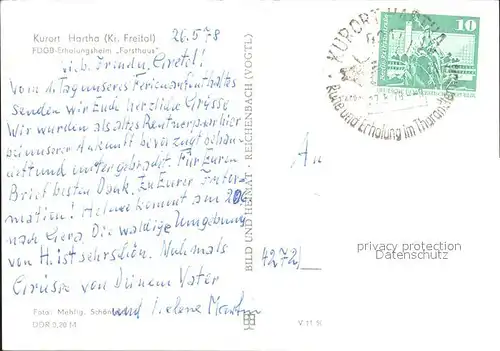 Kurort Hartha (Kr. Freital)
FDGB-Erholungsheim „Forsthaus“
26.5.78
Gretel!
Vom 1. Tag unseres Ferienaufenthaltes
senden wir Euch herzliche Grüsse
Wir wurden als altes Rentnerpaar hier
bei unserer Ankunft bevorzugt behan-
delt und untergebracht. Für Euren
Brief besten Dank, zu Eurer Infor-
mation! Helene kommt am
nach Gera. Die waldige Umgebung
von H. ist sehr schön. Nochmals
Grüsse von Deinem Vater
und Helene
Foto: Mehlig, Schön
DDR 0,20 M
BILD UND HEIMAT · REICHENBACH (VOGTL)
V 11 50
KURORT HARTHA
Ruhe und Erholung im Tharandter
10
An
4272/
privacy protection
Datenschutz